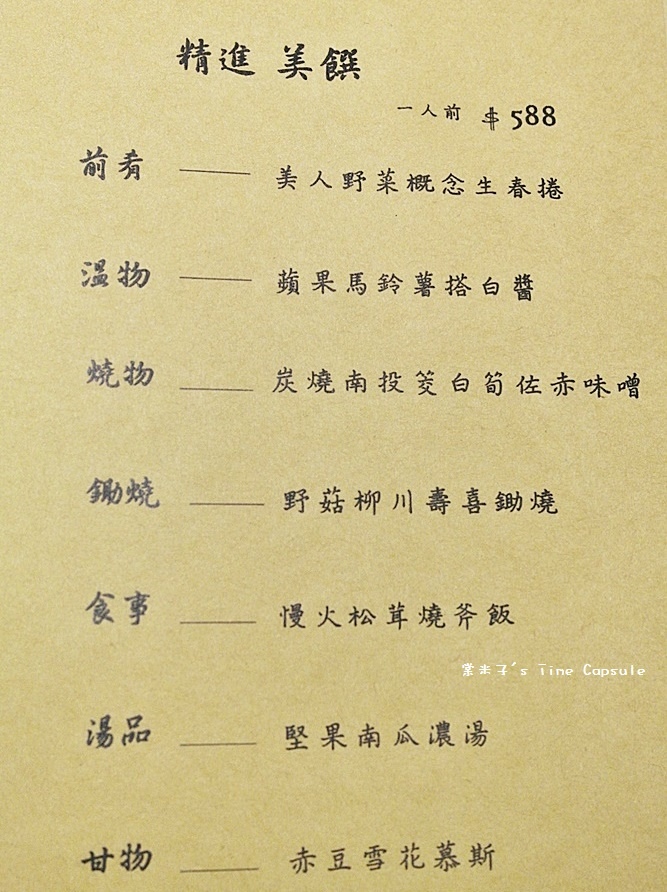 精進 美饌
一人前 $588
前肴 —— 美人野菜概念生春捲
溫物 —— 蘋果馬鈴薯搭白醬
燒物 —— 炭燒南投筊白筍佐赤味噌
鋤燒 —— 野菇柳川壽喜鋤燒
食事 —— 慢火松茸燒斧飯
棠米子's Time Capsule
湯品 —— 堅果南瓜濃湯
甘物 —— 赤豆雪花慕斯